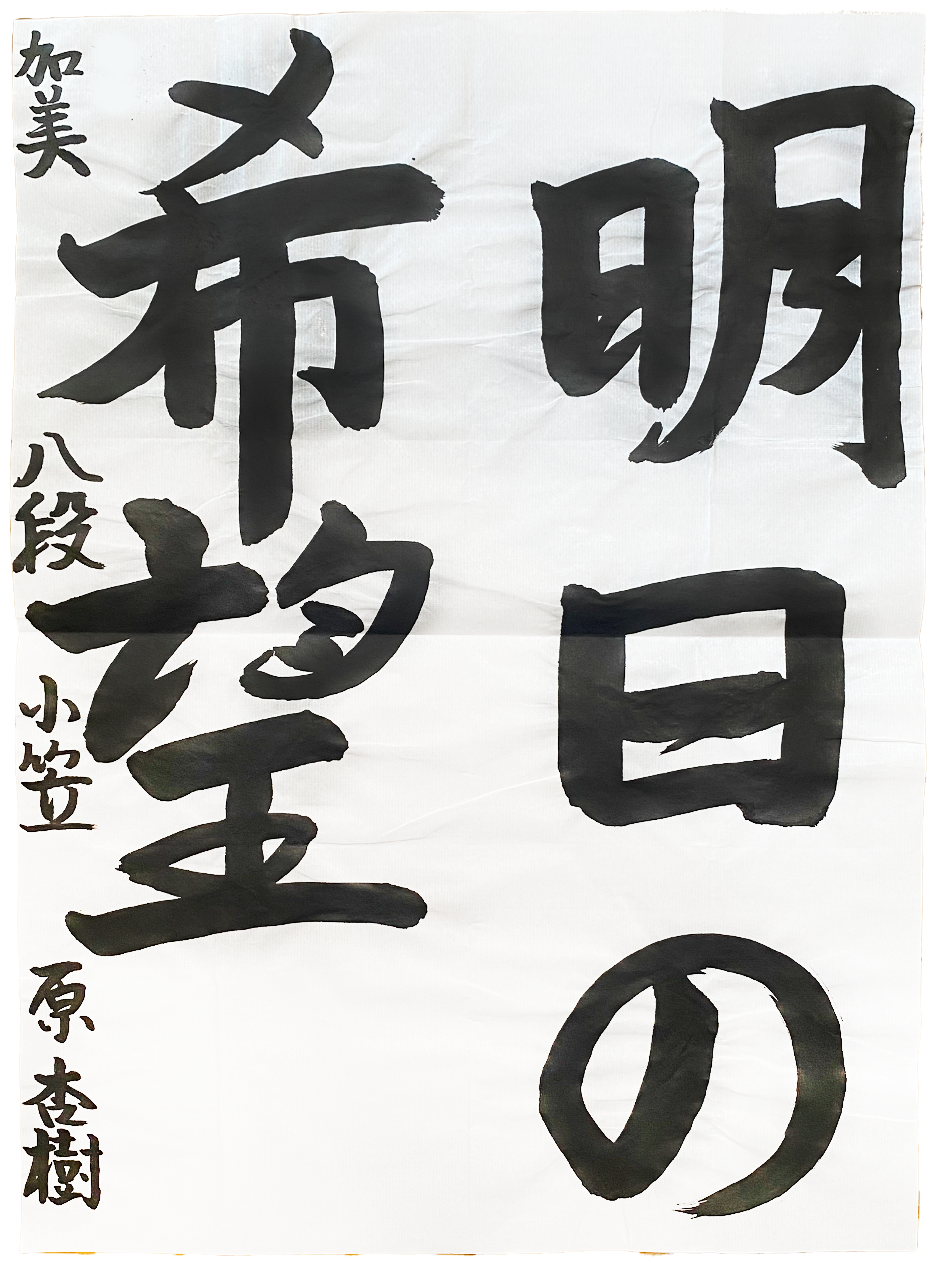 明日の
希望
加美 八段 小笠原杏樹